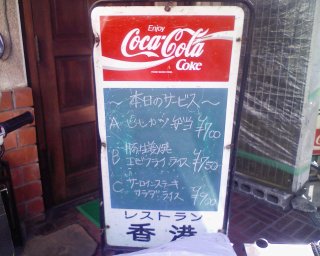 Enjoy
Coca-Cola
Coke
～本日のサービス～
A ヒレカツ弁当 ¥700
B 豚生姜焼
エビフライライス ¥750
C サーロインステーキ
サラダライス ¥900
レストラン
香港